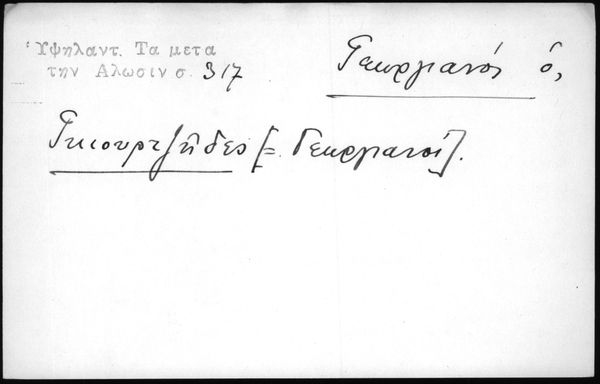 Ὑψηλαντ. Τα μετα
την Αλωσιν σ. 317
Γεωργιανός ὁ,
Γκιουρτζῆδες [= Γεωργιανοί].